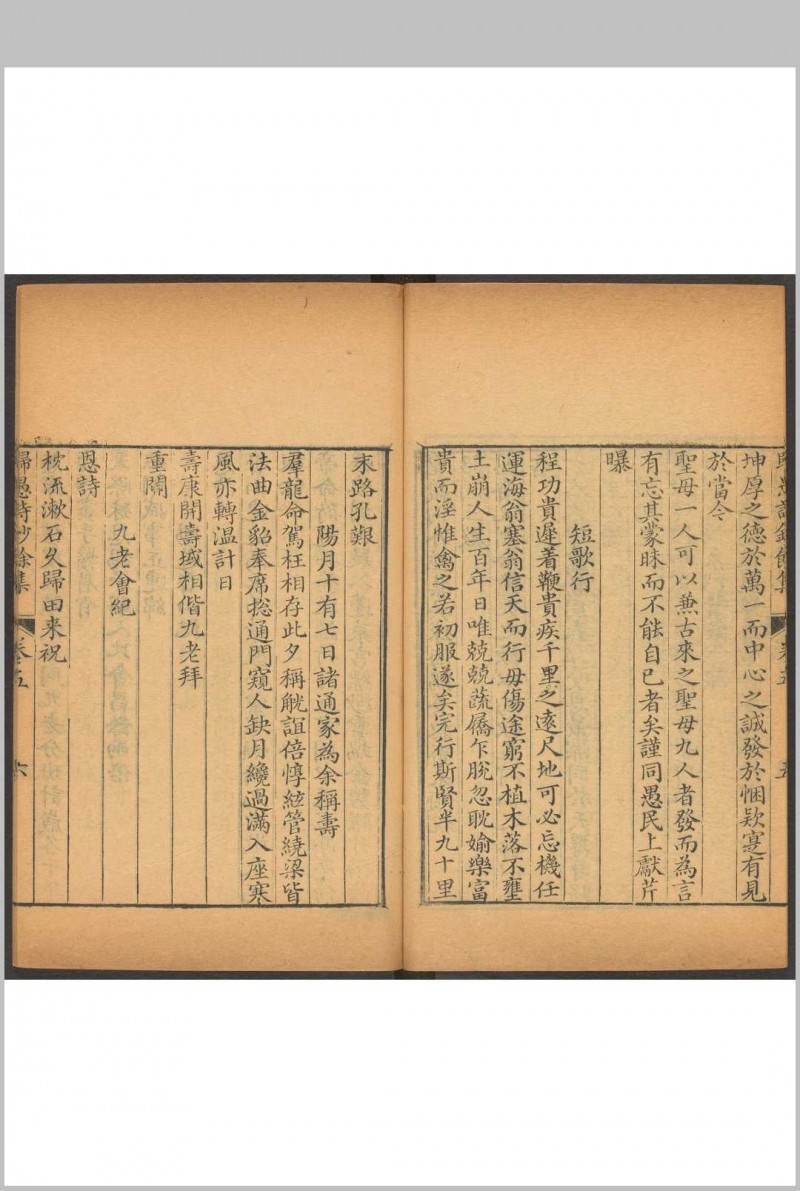 歸愚詩鈔餘集 卷五 五
坤厚之德於萬一而中心之誠發於悃欵寔有見
於當今
聖母一人可以兼古來之聖母九人者發而為言
有忘其蒙昧而不能自已者矣謹同愚民上獻芹
曝
短歌行
程功貴遲着鞭貴疾千里之遠尺地可必忘機任
運海翁塞翁信天而行毋傷途窮不植木落不壅
土崩人生百年日唯兢兢蔬屩乍脫忽耽婾樂富
貴而淫惟禽之若初服遂矣完行斯賢半九十里
末路孔艱
陽月十有七日諸通家為余稱壽
羣龍命駕枉相存此夕稱觥誼倍惇絃管繞梁皆
法曲金貂奉席揔通門窺人缺月纔過滿入座寒
風亦轉溫計日
壽康開壽域相偕九老拜
重閽
九老會紀
恩詩
枕流漱石久歸田来祝
歸愚詩鈔餘集 卷五 六